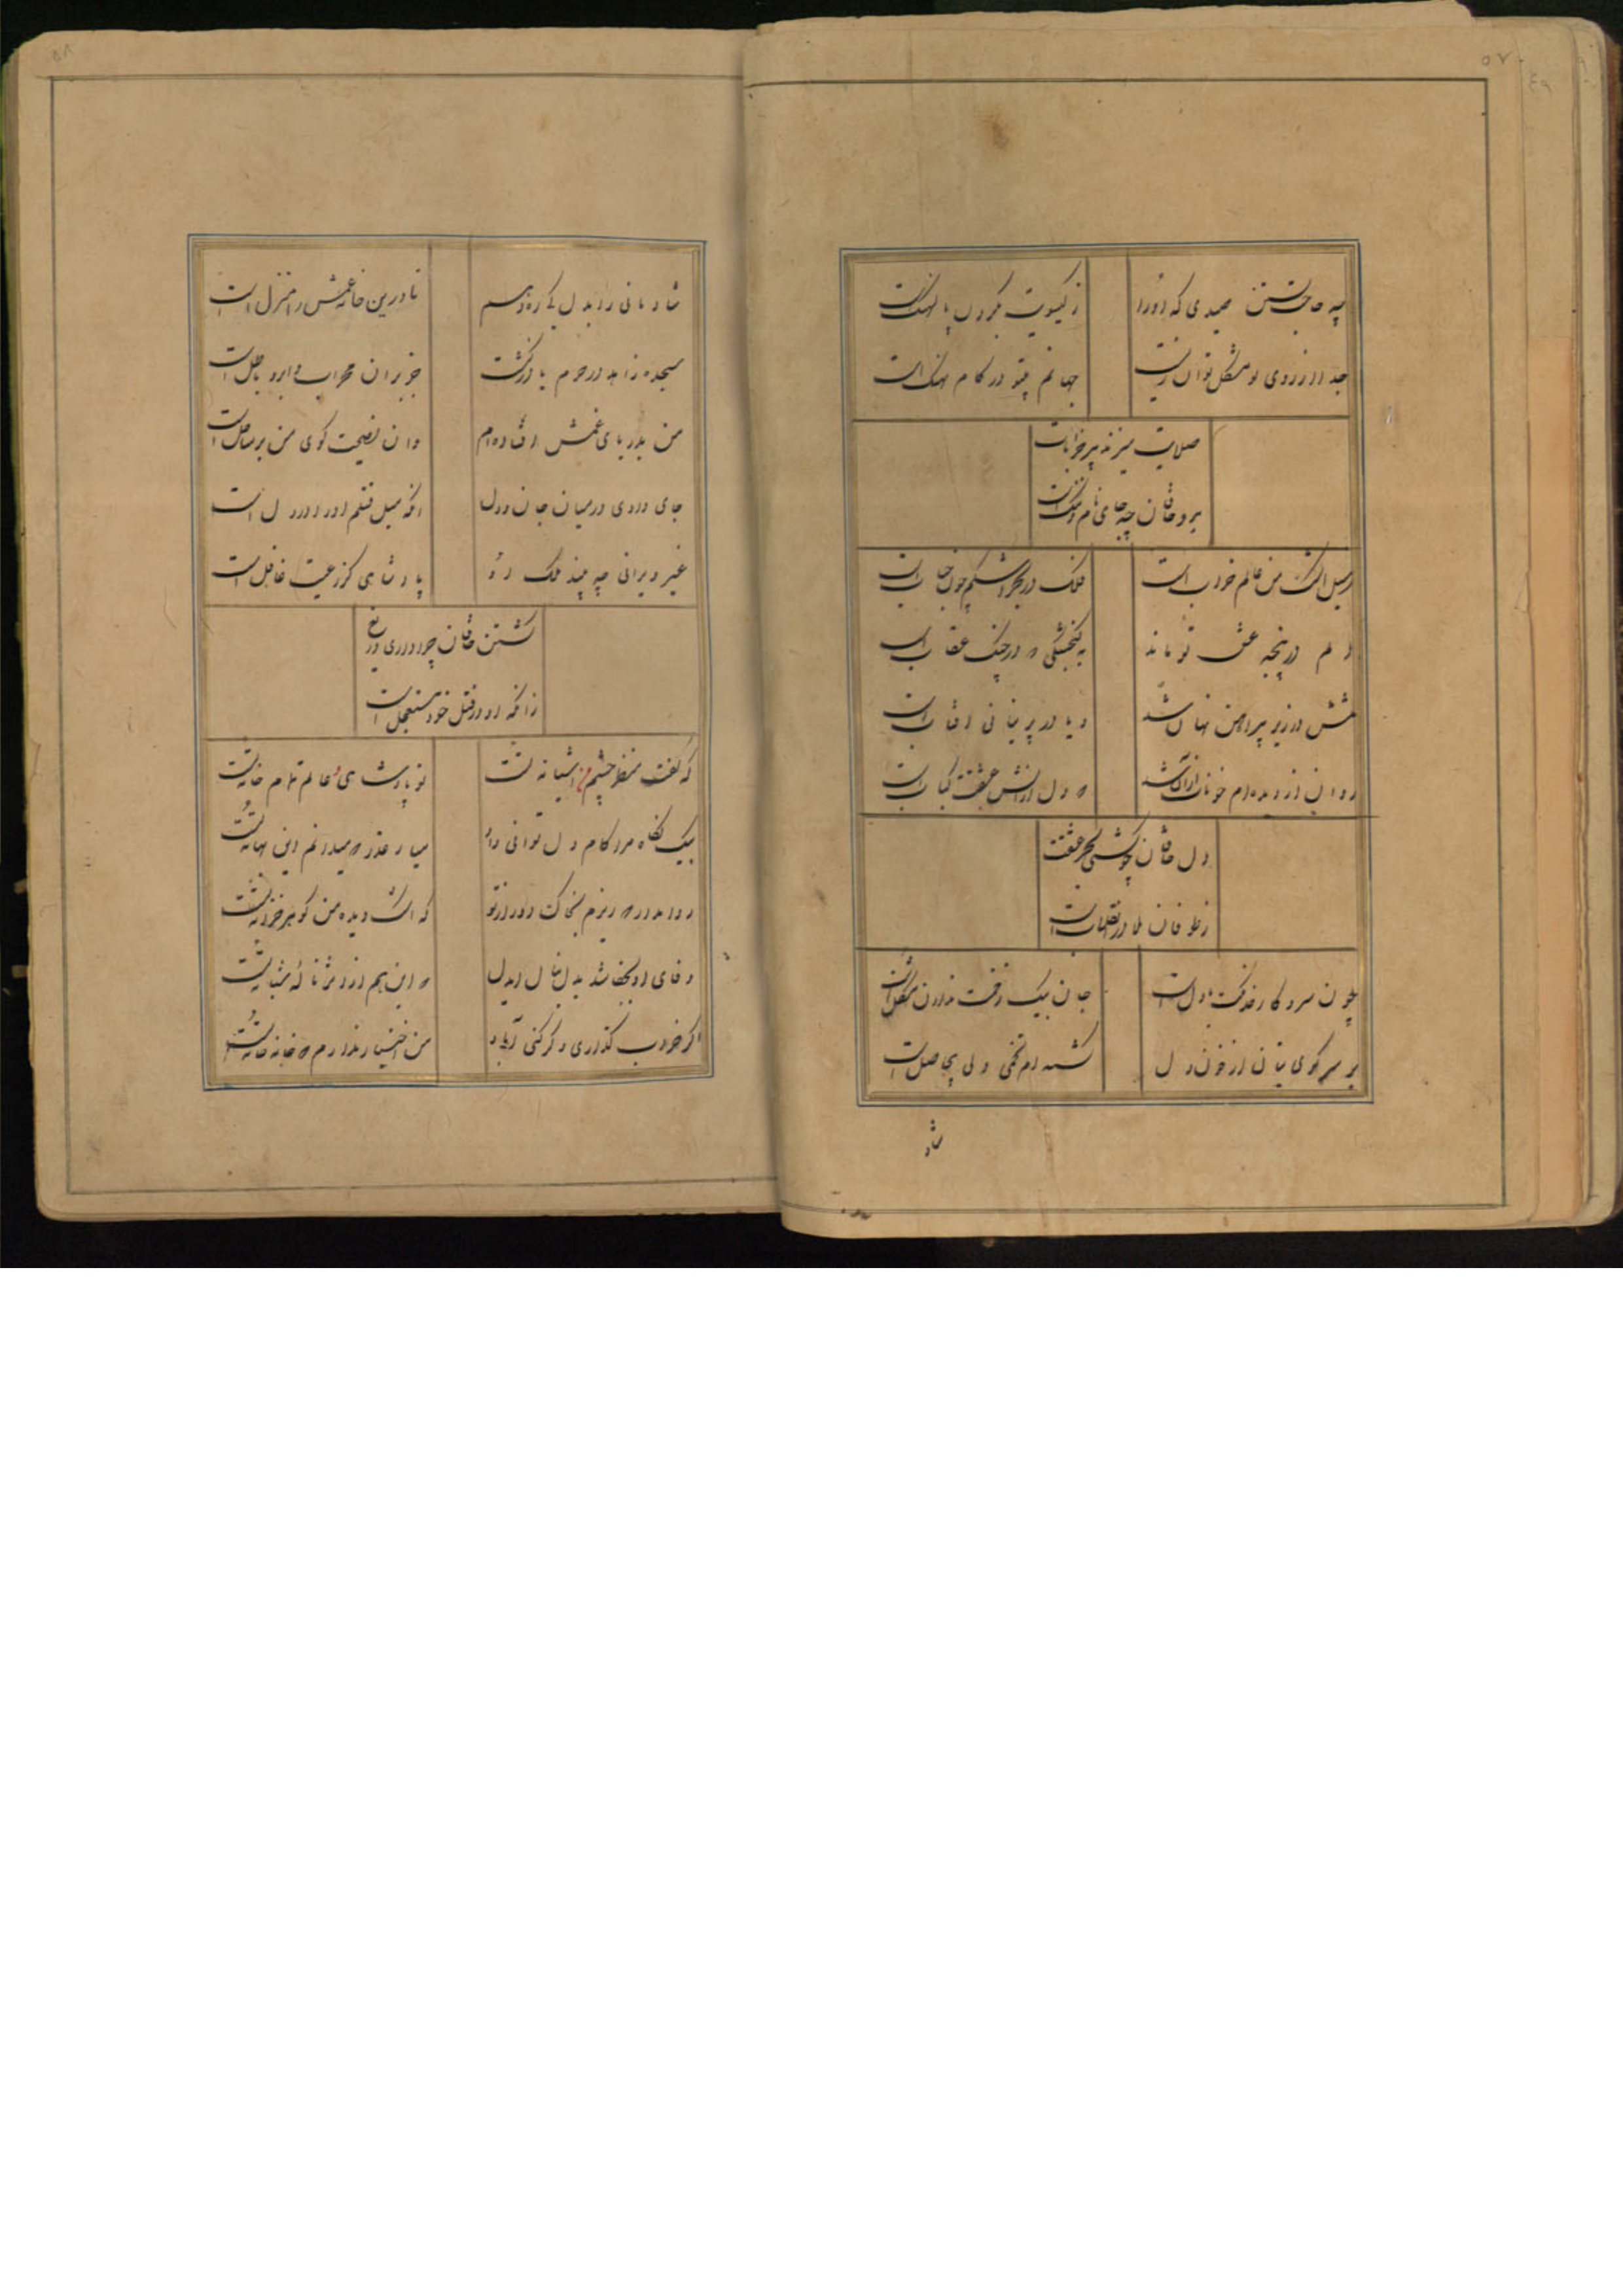 ۵۷
چه حاجت بستن صیدی که او را
ز کیسویت بکردن پالهنک است
جدا از روی تو مشکل توان زیست
جهانم بیتو در کام نهنک است
صلایت میزند پیر خرابات
برو خاقان چه جای نام و ننک است
ز سیل اشک من عالم خراب است
فلک در بحر اشکم چون حباب است
دلم در پنجه عشق تو ماند
به کنجشکی که در چنک عقاب است
تنش در زیر پیراهن نهان شد
و یا در پرنیانی افتاب است
روان از دیده‌ام خوناب از آن شد
که دل از اتش عشقت کباب است
دل خاقان چو کشتی بحر عشقت
ز طوفان بلا در انقلاب است
چون سر و کار خدنکت با دل است
جان بیک زخمت ندادن مشکل است
بر سر کوی بتان از خون دل
کشته‌ام تخمی ولی بیحاصل است
شاد
۵۸
شادمانی را بدل کی ره دهم
تا درین خانه غمش را منزل است
سجده زاهد در حرم یا در کنشت
جز بر ان محراب ابرو باطل است
من بدریای غمش افتاده‌ام
وان نصیحت کوی من بر ساحل است
جای دادی در میان جان و دل
انکه میل قتلم او را در دل است
غیر ویرانی چه بیند ملک او
پادشاهی کز رعیت غافل است
کشتن خاقان چرا داری دریغ
زانکه او در قتل خود مستعجل است
که کفت منظر چشم من اشیانه تست
تو پادشاهی و عالم تمام خانه تست
بیک نکاه مرا کام دل توانی داد
میار عذر که میدانم این بهانه تست
روا مدار که ریزم بخاک دور از تو
که اشک دیده من کوهر خزانه تست
وفای او بجفا شد بدل بنال ایدل
که این هم از اثر ناله شبانه تست
اکر خراب کذاری و کر کنی آباد
من اختیار ندارم که خانه خانه تست